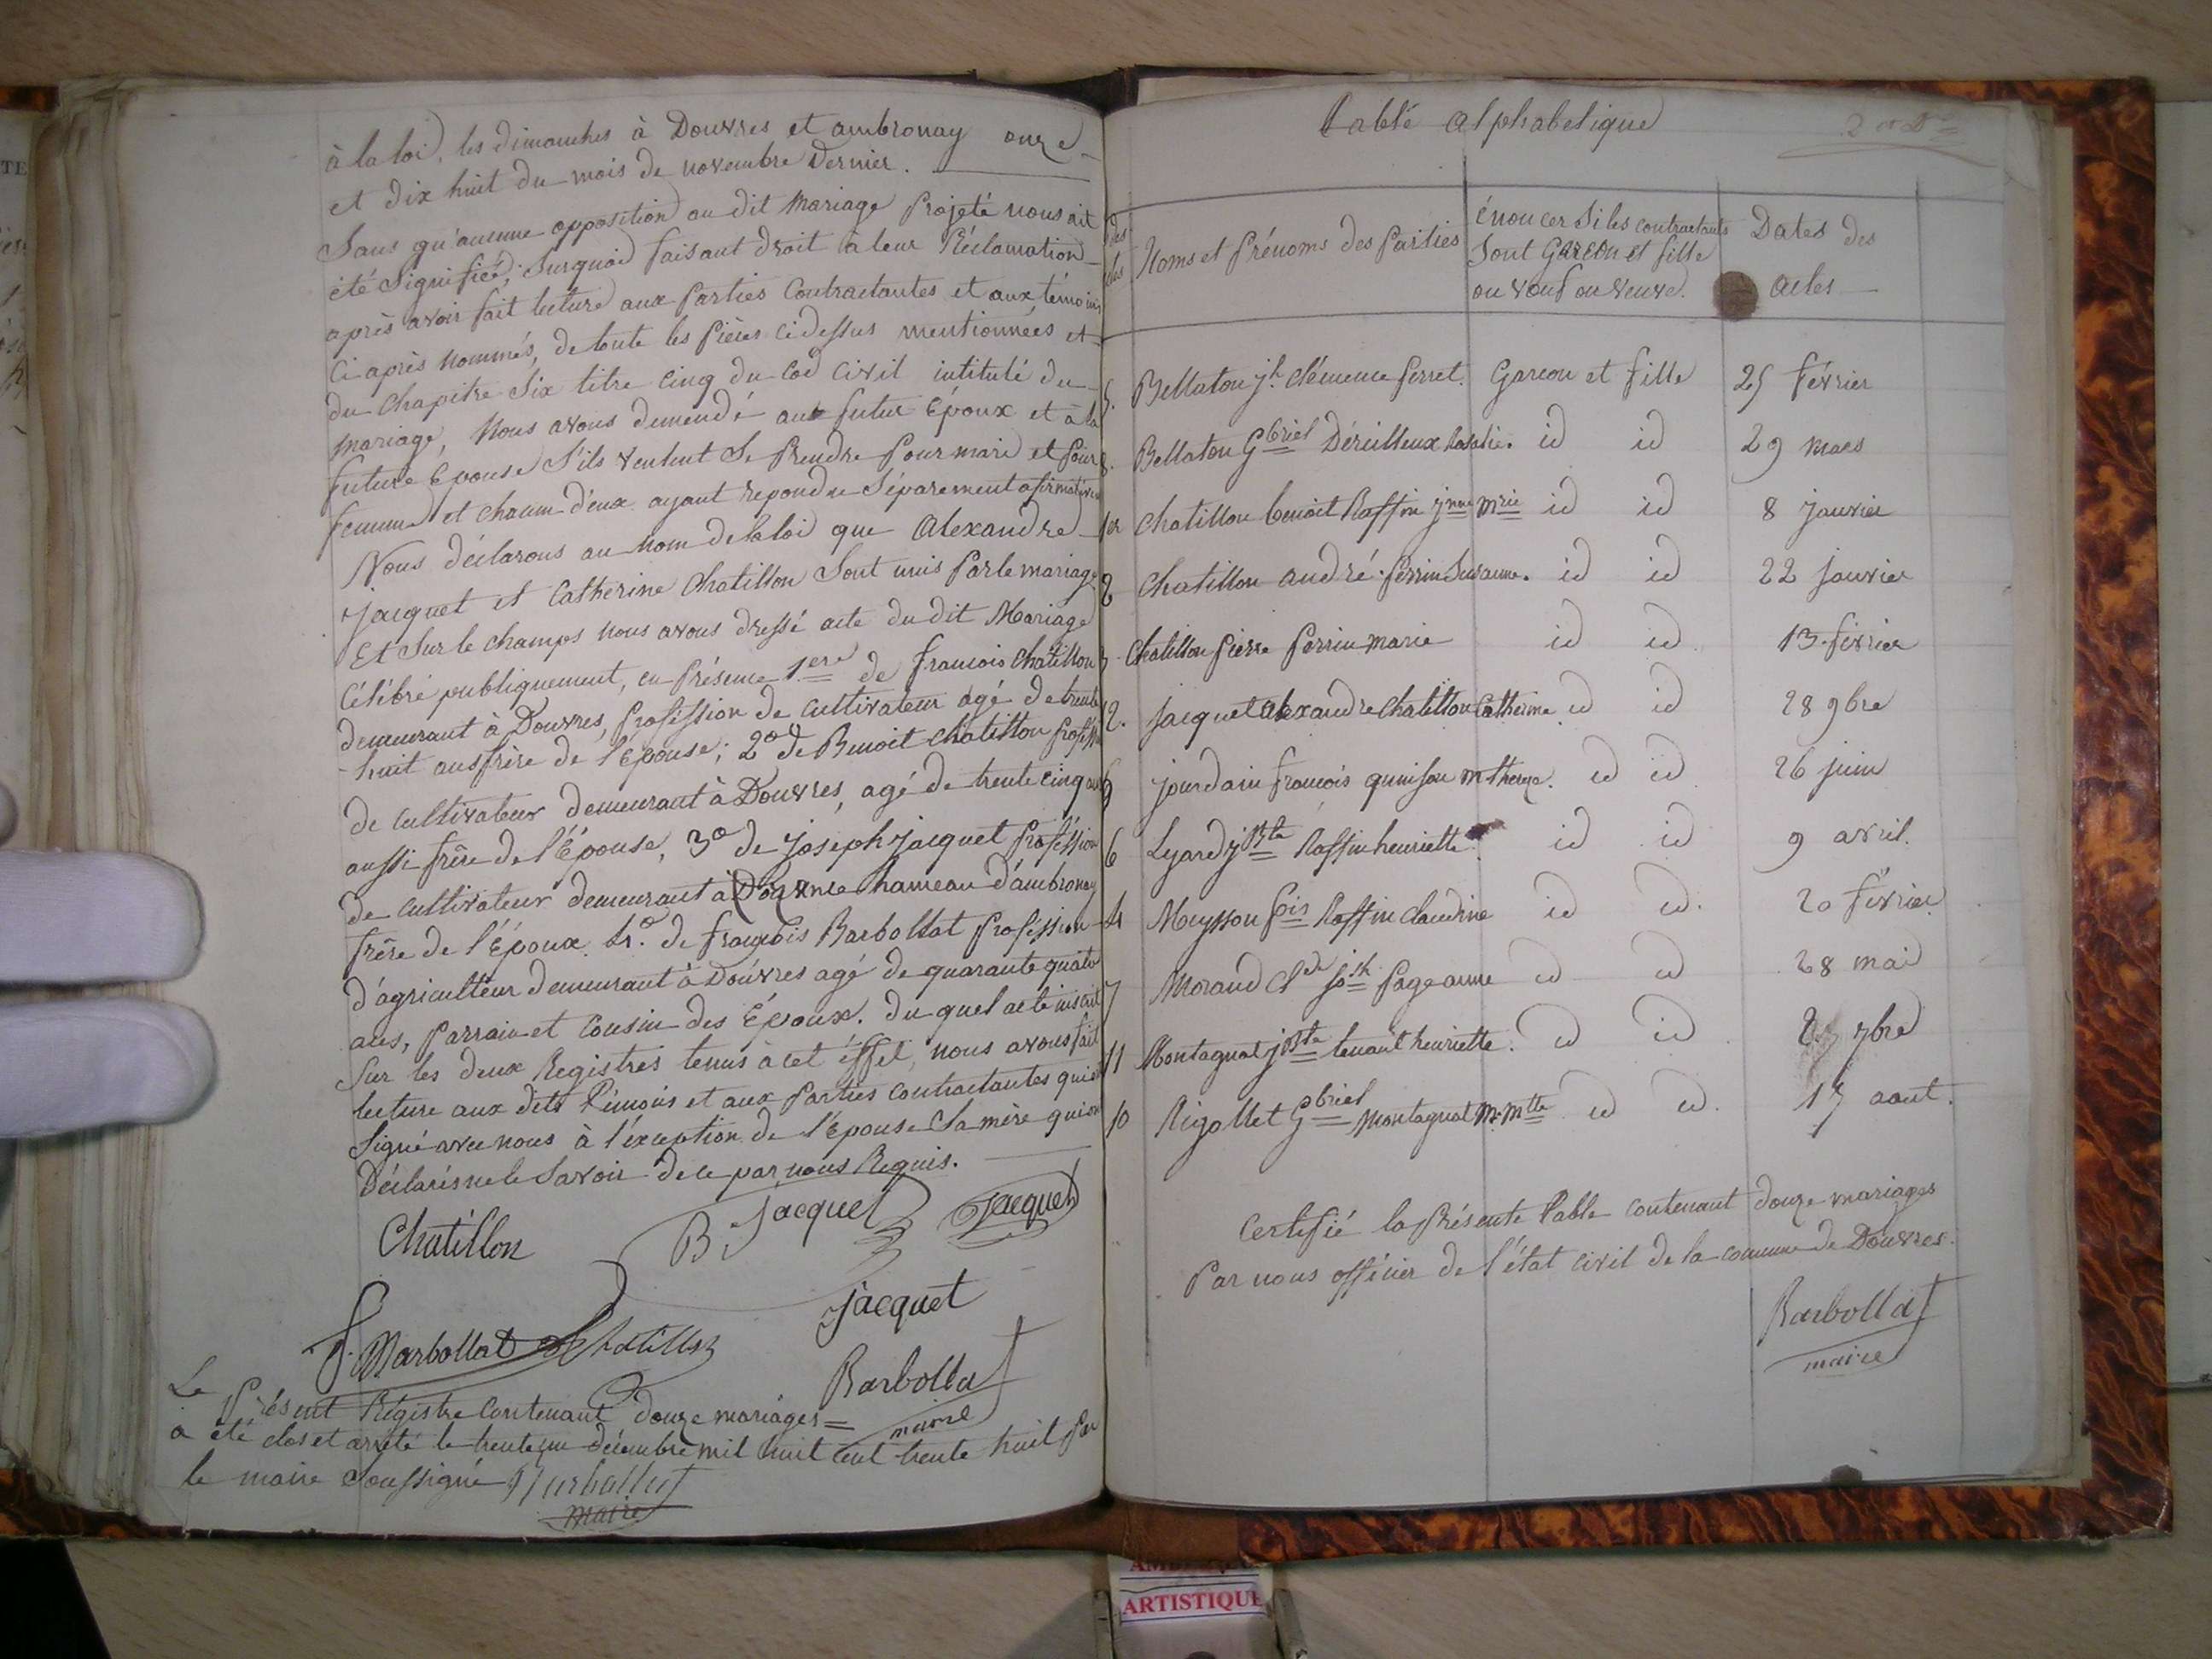 à la loi, les dimanches à Douvres et ambronay onze
et dix huit du mois de novembre Dernier.
Sans qu'aucune opposition au dit Mariage Projeté nous ait
été Signifiée; Surquoi faisant droit à leur Réclamation
après avoir fait lecture aux Parties Contractantes et aux témoins
Ci après nommés, de toute les Pièces ci dessus mentionnées et
du Chapitre Six titre Cinq du Cod Civil intitulé du
mariage, Nous avons demendé aux futur Epoux et à la
future Epouse S'ils veulent Se Prendre Pour mari et Pour
femme et chacun d'eux ayant repondu Séparement
Nous déclarons au nom de la loi que Alexandre
Jacquet et Catherine Chatillon Sont unis Par le mariage
Et Sur le champs nous avons dressé acte du dit Mariage
Célébré publiquement, en Présence 1.ere de francois Chatillon
demeurant à Douvres, Profession de Cultivateur agé de trente
huit ans frère de l'épouse; 2º de Benoit Chatillon
de cultivateur demeurant à Douvres, agé de trente cinq ans
aussi frère de l'Épouse, 3º de joseph jacquet Proféssion
de cultivateur demeurant à hameau d'ambronay
frère de l'Époux 4.º de françois Barbollat Profession
d'agriculteur demeurant à Douvres agé de quarante quatre
ans, Parrain et Cousin des Époux. Du quel acte inscrit
Sur les deux Registres tenus à cet éffet, nous avons fait
lecture aux dits témoins et aux Parties contractantes qui
Signé avec nous à l'exception de l'Epouse Sa mère qui
Déclarés ne le Savoir de ce par nous Requis.
Chatillon B. Jacquet Jacquet
jacquet
f. Marbollat Chatillon
Barbollat
maire
Le Présent Régistre Contenant douze mariages
a été clos et arreté le trente un décembre mil huit cent trente huit Par
le maire Soussigné
maire
table alphabetique
Noms et Prénoms des Parties
énoncer Si les contractants
Sont Garcon et fille
ou veuf ou veuve.
Dates des
actes
5. Bellaton jh. clémence ferret. Garcon et fille 25 février
8. Bellaton Gbriel Dérulleux Rosalie. id id 29 mars
1er Chatillon benoit Roffin jnne mrie id id 8 janvier
2 Chatillon andré. Perrin Suzanne. id id 22 janvier
3. Chatillon Pierre Perrin marie id id 13. février
12. jacquet alexandre Chatillon Catherine id id 28 9bre
9 jourdain francois quinson m therese. id id 26 juin
6 Lyard jBte Roffin henriette. id id 9 avril.
4 Meysson fois Roffin claudine id id. 20 février
7 Morand Cde Jsh. Page anne id id 28 mai
11 Montagnat jBte tenant henriette. id id 7bre
10 Rigollet Gbriel Montagnat M. Mtte id id. aout.
Certifié la Présente table contenant douze mariages
Par nous officier de l'état civil de la commune de Douvres.
Barbollat
maire
ARTISTIQUE